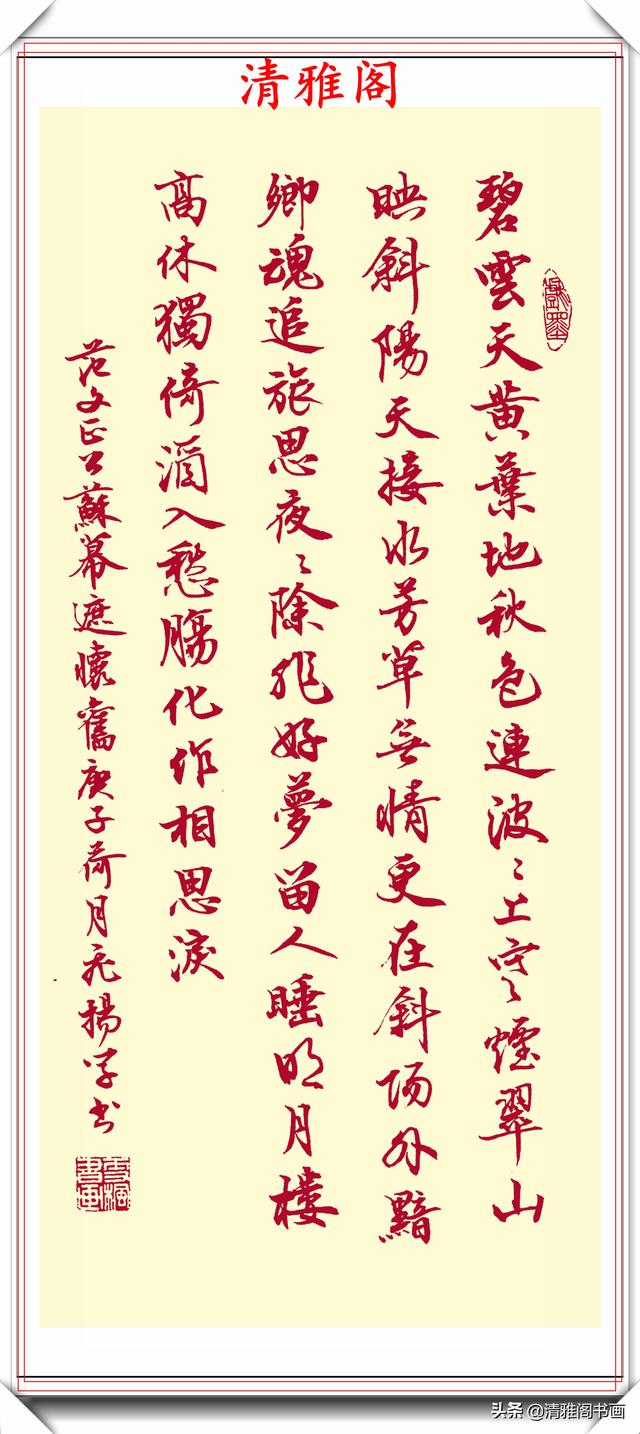 清雅阁
碧雲天黃葉地秋色連波〻上寒煙翠山
映斜陽天接水芳草無情更在斜陽外黯
鄉魂追旅思夜〻除非好夢留人睡明月樓
高休獨倚酒入愁腸化作相思淚
范文正公蘇幕遮懷舊庚子荷月揚學書
头条@清雅阁书画